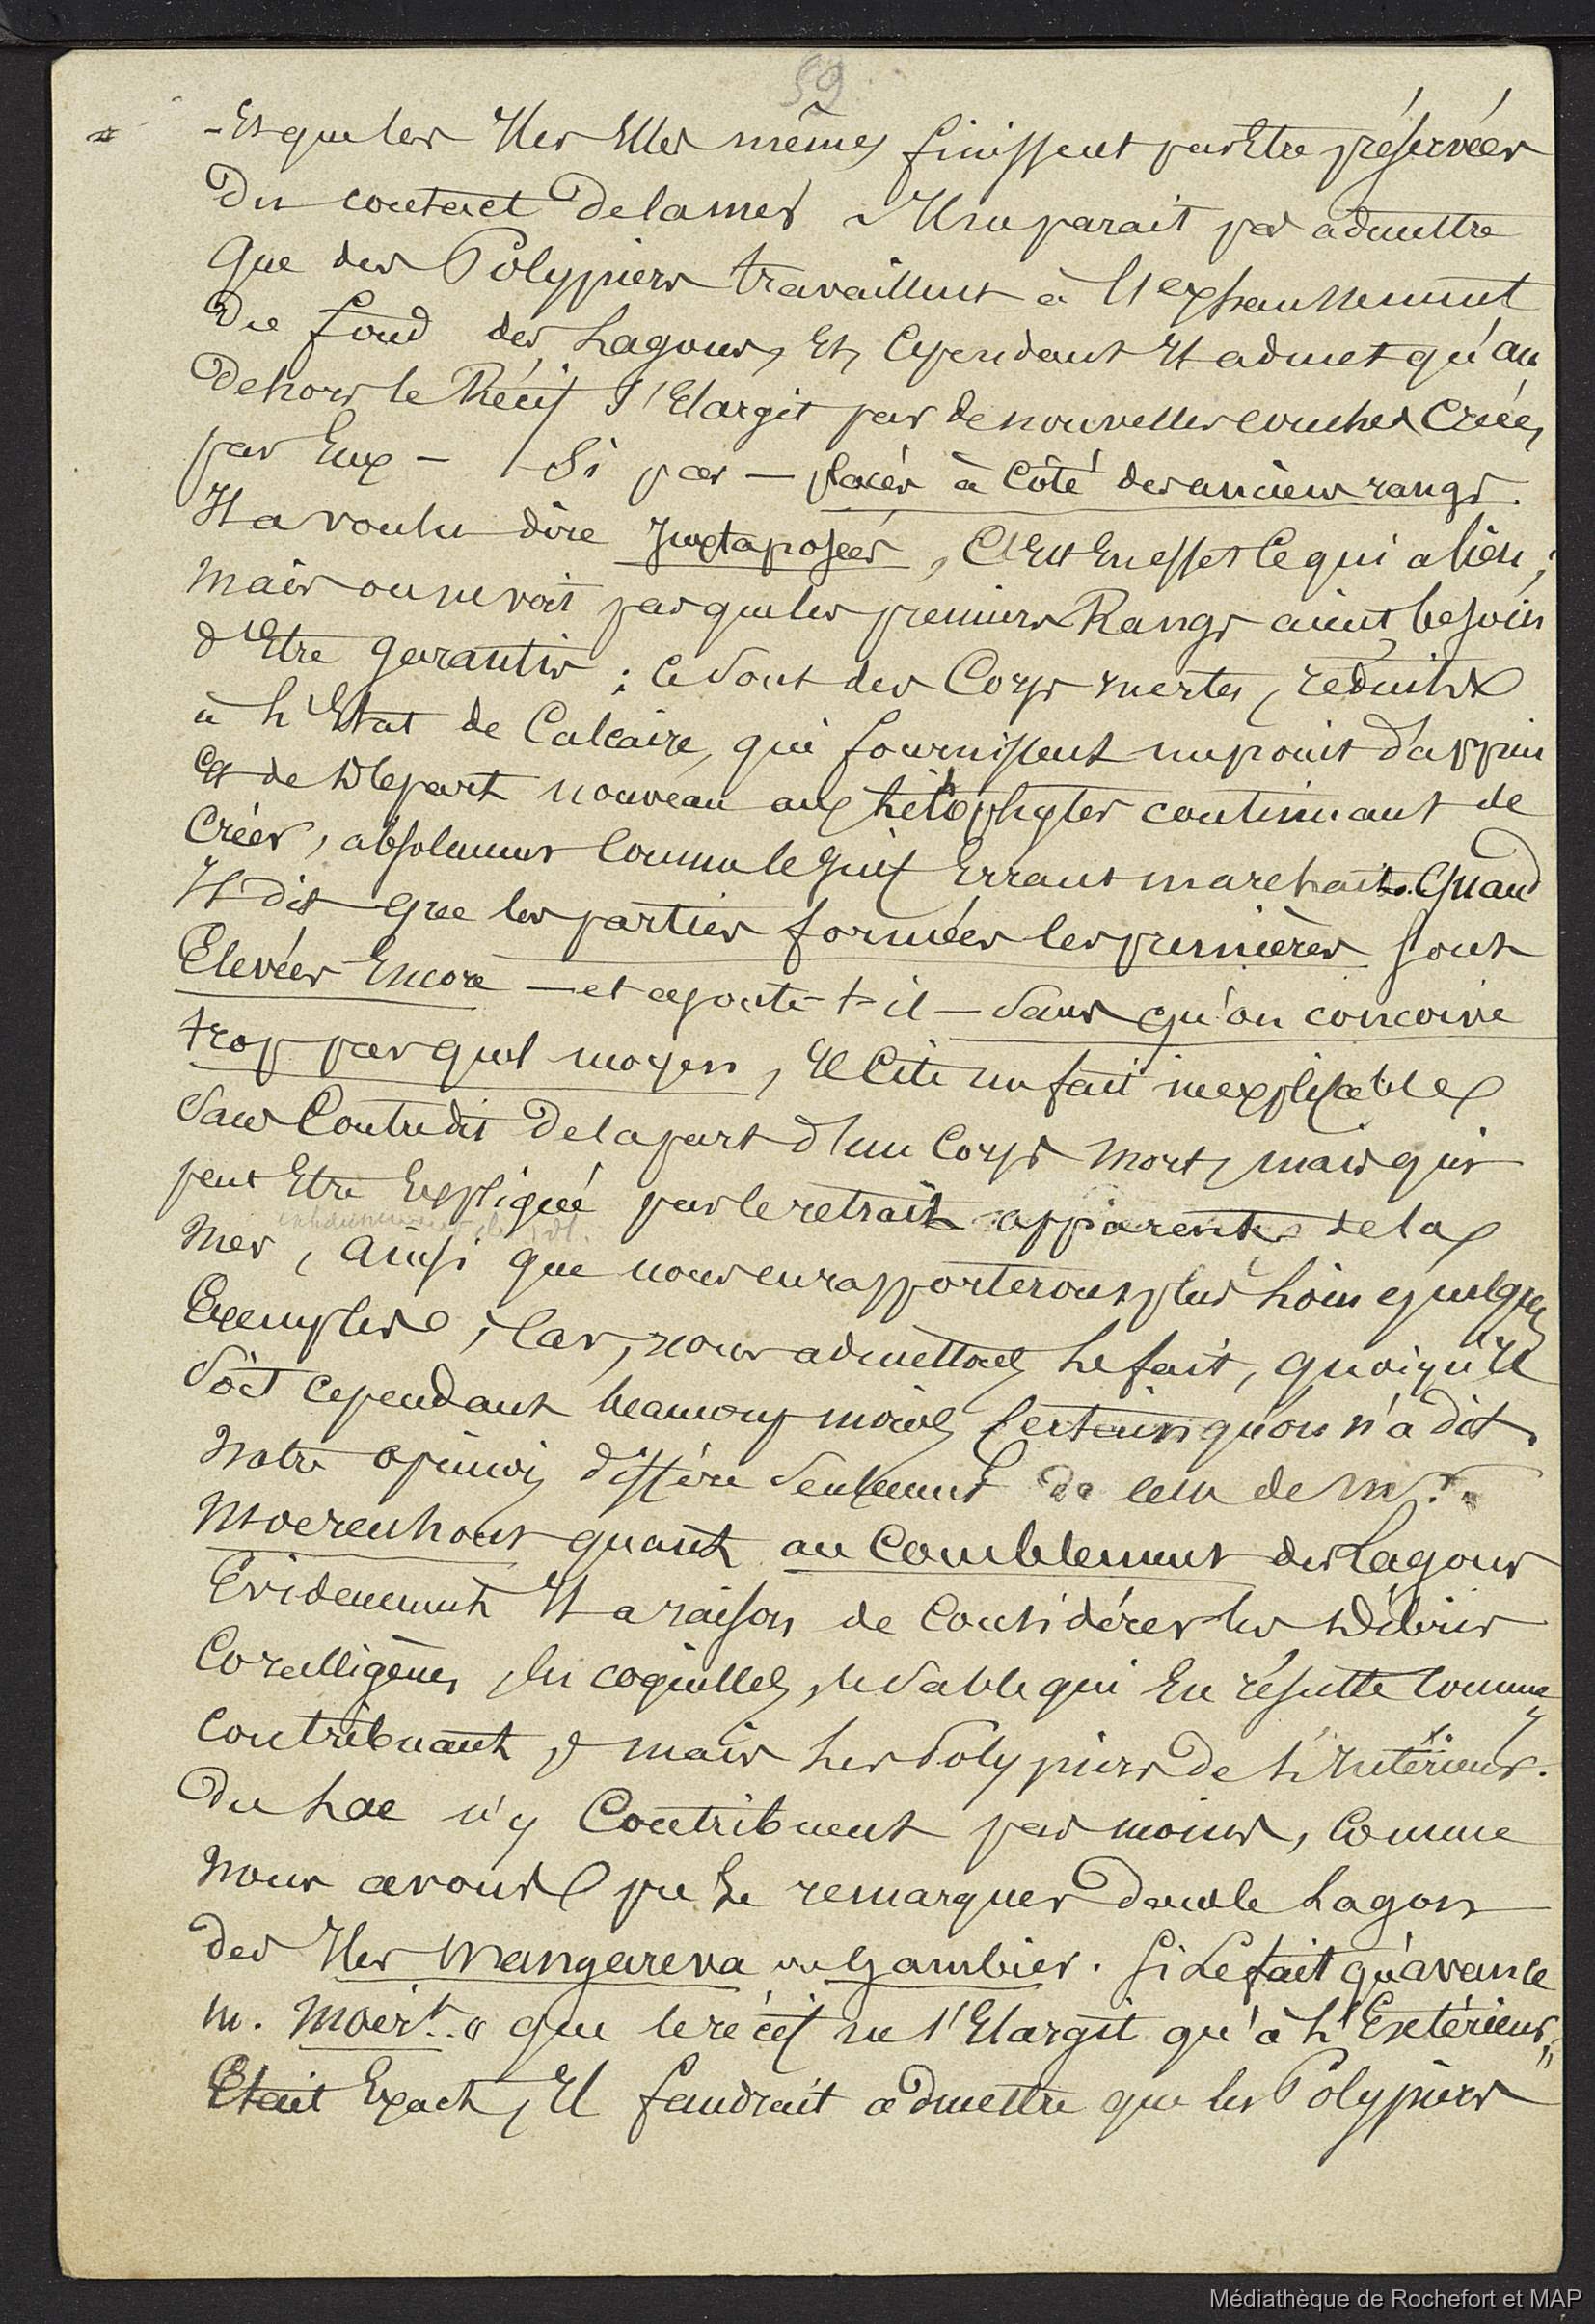 59
- Et que les Iles Elles mêmes finissent par Etre préservées
Du contact De la mer. Il ne parait pas admettre
Que des Polypiers travaillent à l'exhaussement
Du fond des Lagons, Et, Cependant Il admet qu'au
Dehors le Récif s'Elargit par de nouvelles couches Créées
par Eux - Si par - placés à Côté des anciens rangs.
Il a voulu dire Juxtaposées, C'Est En effet Ce qui a lieu ;
Mais on ne voit pas que les premiers Rangs aient besoin
d'Etre garantis ; Ce sont des Corps inertes, réduits
à L'Etat de Calcaire, qui fournissent un point d'appui
Et de Départ nouveau aux litophytes continuant de
Créer, absolument Comme le Juif Errant marchait. Quand
Il dit que les parties formées les premières sont
Elevées Encore - et ajoute-t-il - sans qu'on conçoive
trop par quel moyen, Il Cite un fait inexplicable
Sans Contredit De la part d'un Corps mort, mais qui
peut Etre Expliqué par le retrait apparent de la
exhaussement du sol.
Mer, ainsi que nous en rapporterons plus Loin quelques
Exemples ; Car, nous admettons Le fait, quoiqu'Il
Soit cependant beaucoup moins Certain qu'on n'a dit.
Notre opinion diffère Seulement de celle de Mr.
Moerenhout quant au Comblement des Lagons
Evidemment Il a raison de Considérer les Débris
Coralligènes, les coquilles, le Sable qui En résulte Comme
Contribuant, mais Les Polypiers de L'Intérieur.
Du Lac n'y Contribuent pas moins, Comme
Nous avons pu Le remarquer Dans le Lagon
des Iles Mangareva ou Gambier. Si Le fait qu'avance
M. Moert. " que le récif ne s'Elargit qu'à L'Extérieur,"
Etait Exact, Il faudrait admettre que les Polypiers
Médiathèque de Rochefort et MAP